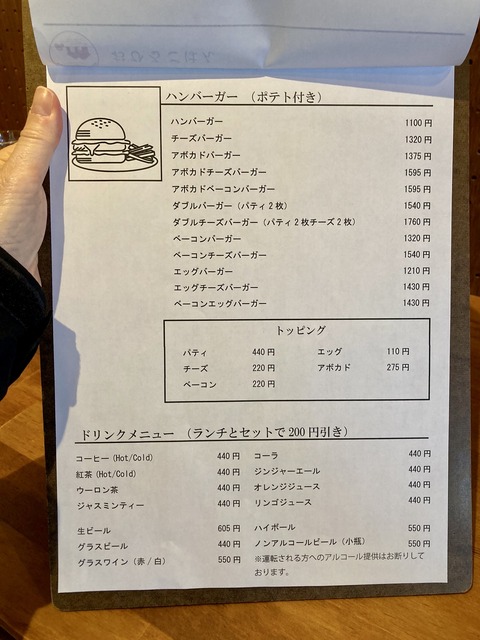 ハンバーガー （ポテト付き）
ハンバーガー 1100 円
チーズバーガー 1320 円
アボカドバーガー 1375 円
アボカドチーズバーガー 1595 円
アボカドベーコンバーガー 1595 円
ダブルバーガー（パティ２枚） 1540 円
ダブルチーズバーガー（パティ２枚チーズ２枚） 1760 円
ベーコンバーガー 1320 円
ベーコンチーズバーガー 1540 円
エッグバーガー 1210 円
エッグチーズバーガー 1430 円
ベーコンエッグバーガー 1430 円
トッピング
パティ 440 円 エッグ 110 円
チーズ 220 円 アボカド 275 円
ベーコン 220 円
ドリンクメニュー （ランチとセットで 200 円引き）
コーヒー (Hot/Cold) 440 円 コーラ 440 円
紅茶 (Hot/Cold) 440 円 ジンジャーエール 440 円
ウーロン茶 440 円 オレンジジュース 440 円
ジャスミンティー 440 円 リンゴジュース 440 円
生ビール 605 円 ハイボール 550 円
グラスビール 440 円 ノンアルコールビール（小瓶） 550 円
グラスワイン（赤 / 白） 550 円 ※運転される方へのアルコール提供はお断りして
おります。